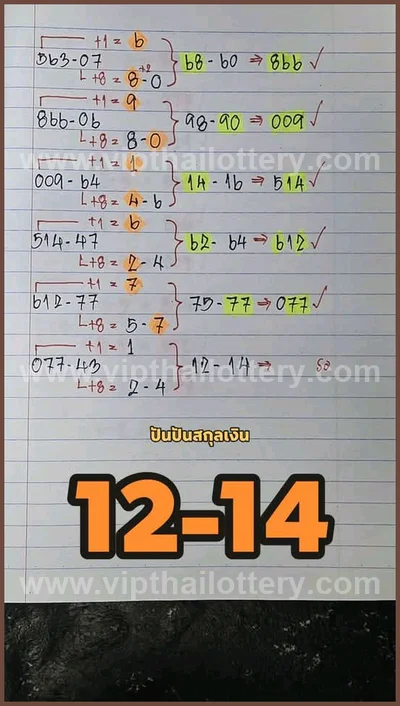 +1 = 6
563-07 68-60 ⇒ 866 ✓
+8 = 8-0 +2
+1 = 9
866-06 98-90 ⇒ 009 ✓
+8 = 8-0
www.vipthailottery.com
+1 = 1
009-64 14-16 ⇒ 514 ✓
+8 = 4-6
+1 = 6
514-47 62-64 ⇒ 612 ✓
+8 = 2-4
+1 = 7
612-77 75-77 ⇒ 077 ✓
+8 = 5-7
+1 = 1
077-43 12-14 ⇒
www.vipthailottery.com
+8 = 2-4
ปันปันสกุลเงิน
12-14
www.vipthailottery.com